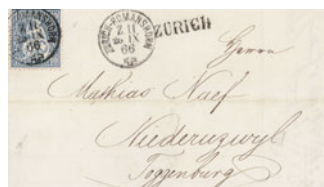 ZÜRICH-ROMANSHORN
Z II
8 IX
66
ZÜRICH
Herrn
Mathias Naef
Niederuzwyl
Toggenburg